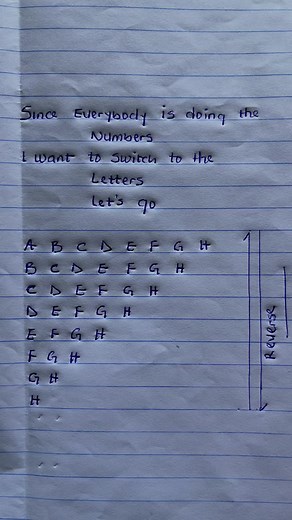 Since Everybody is doing the
Numbers
I want to switch to the
Letters
Let's go
A B C D E F G H
B C D E F G H
C D E F G H
D E F G H
E F G H
F G H
G H
H
Reverse